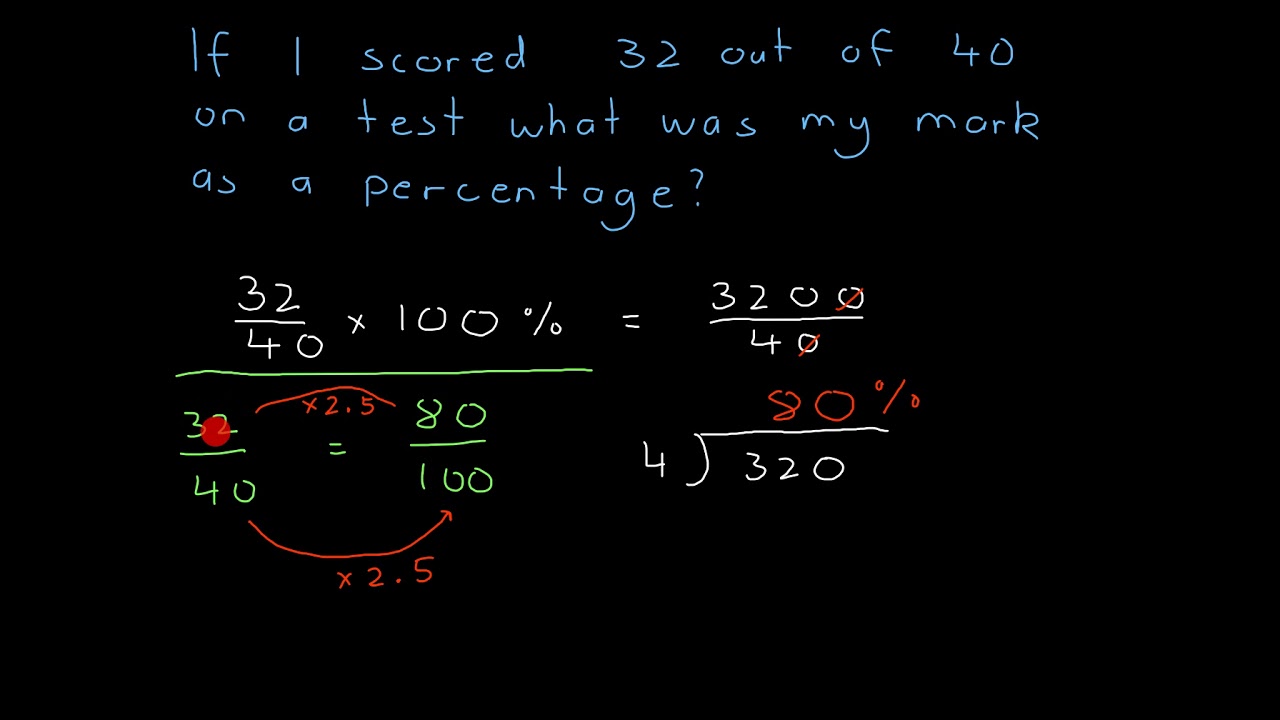 If I scored 32 out of 40
on a test what was my mark
as a percentage?
32/40 × 100 % = 3200/40
32/40 = 80/100
×2.5
×2.5
80%
4)320